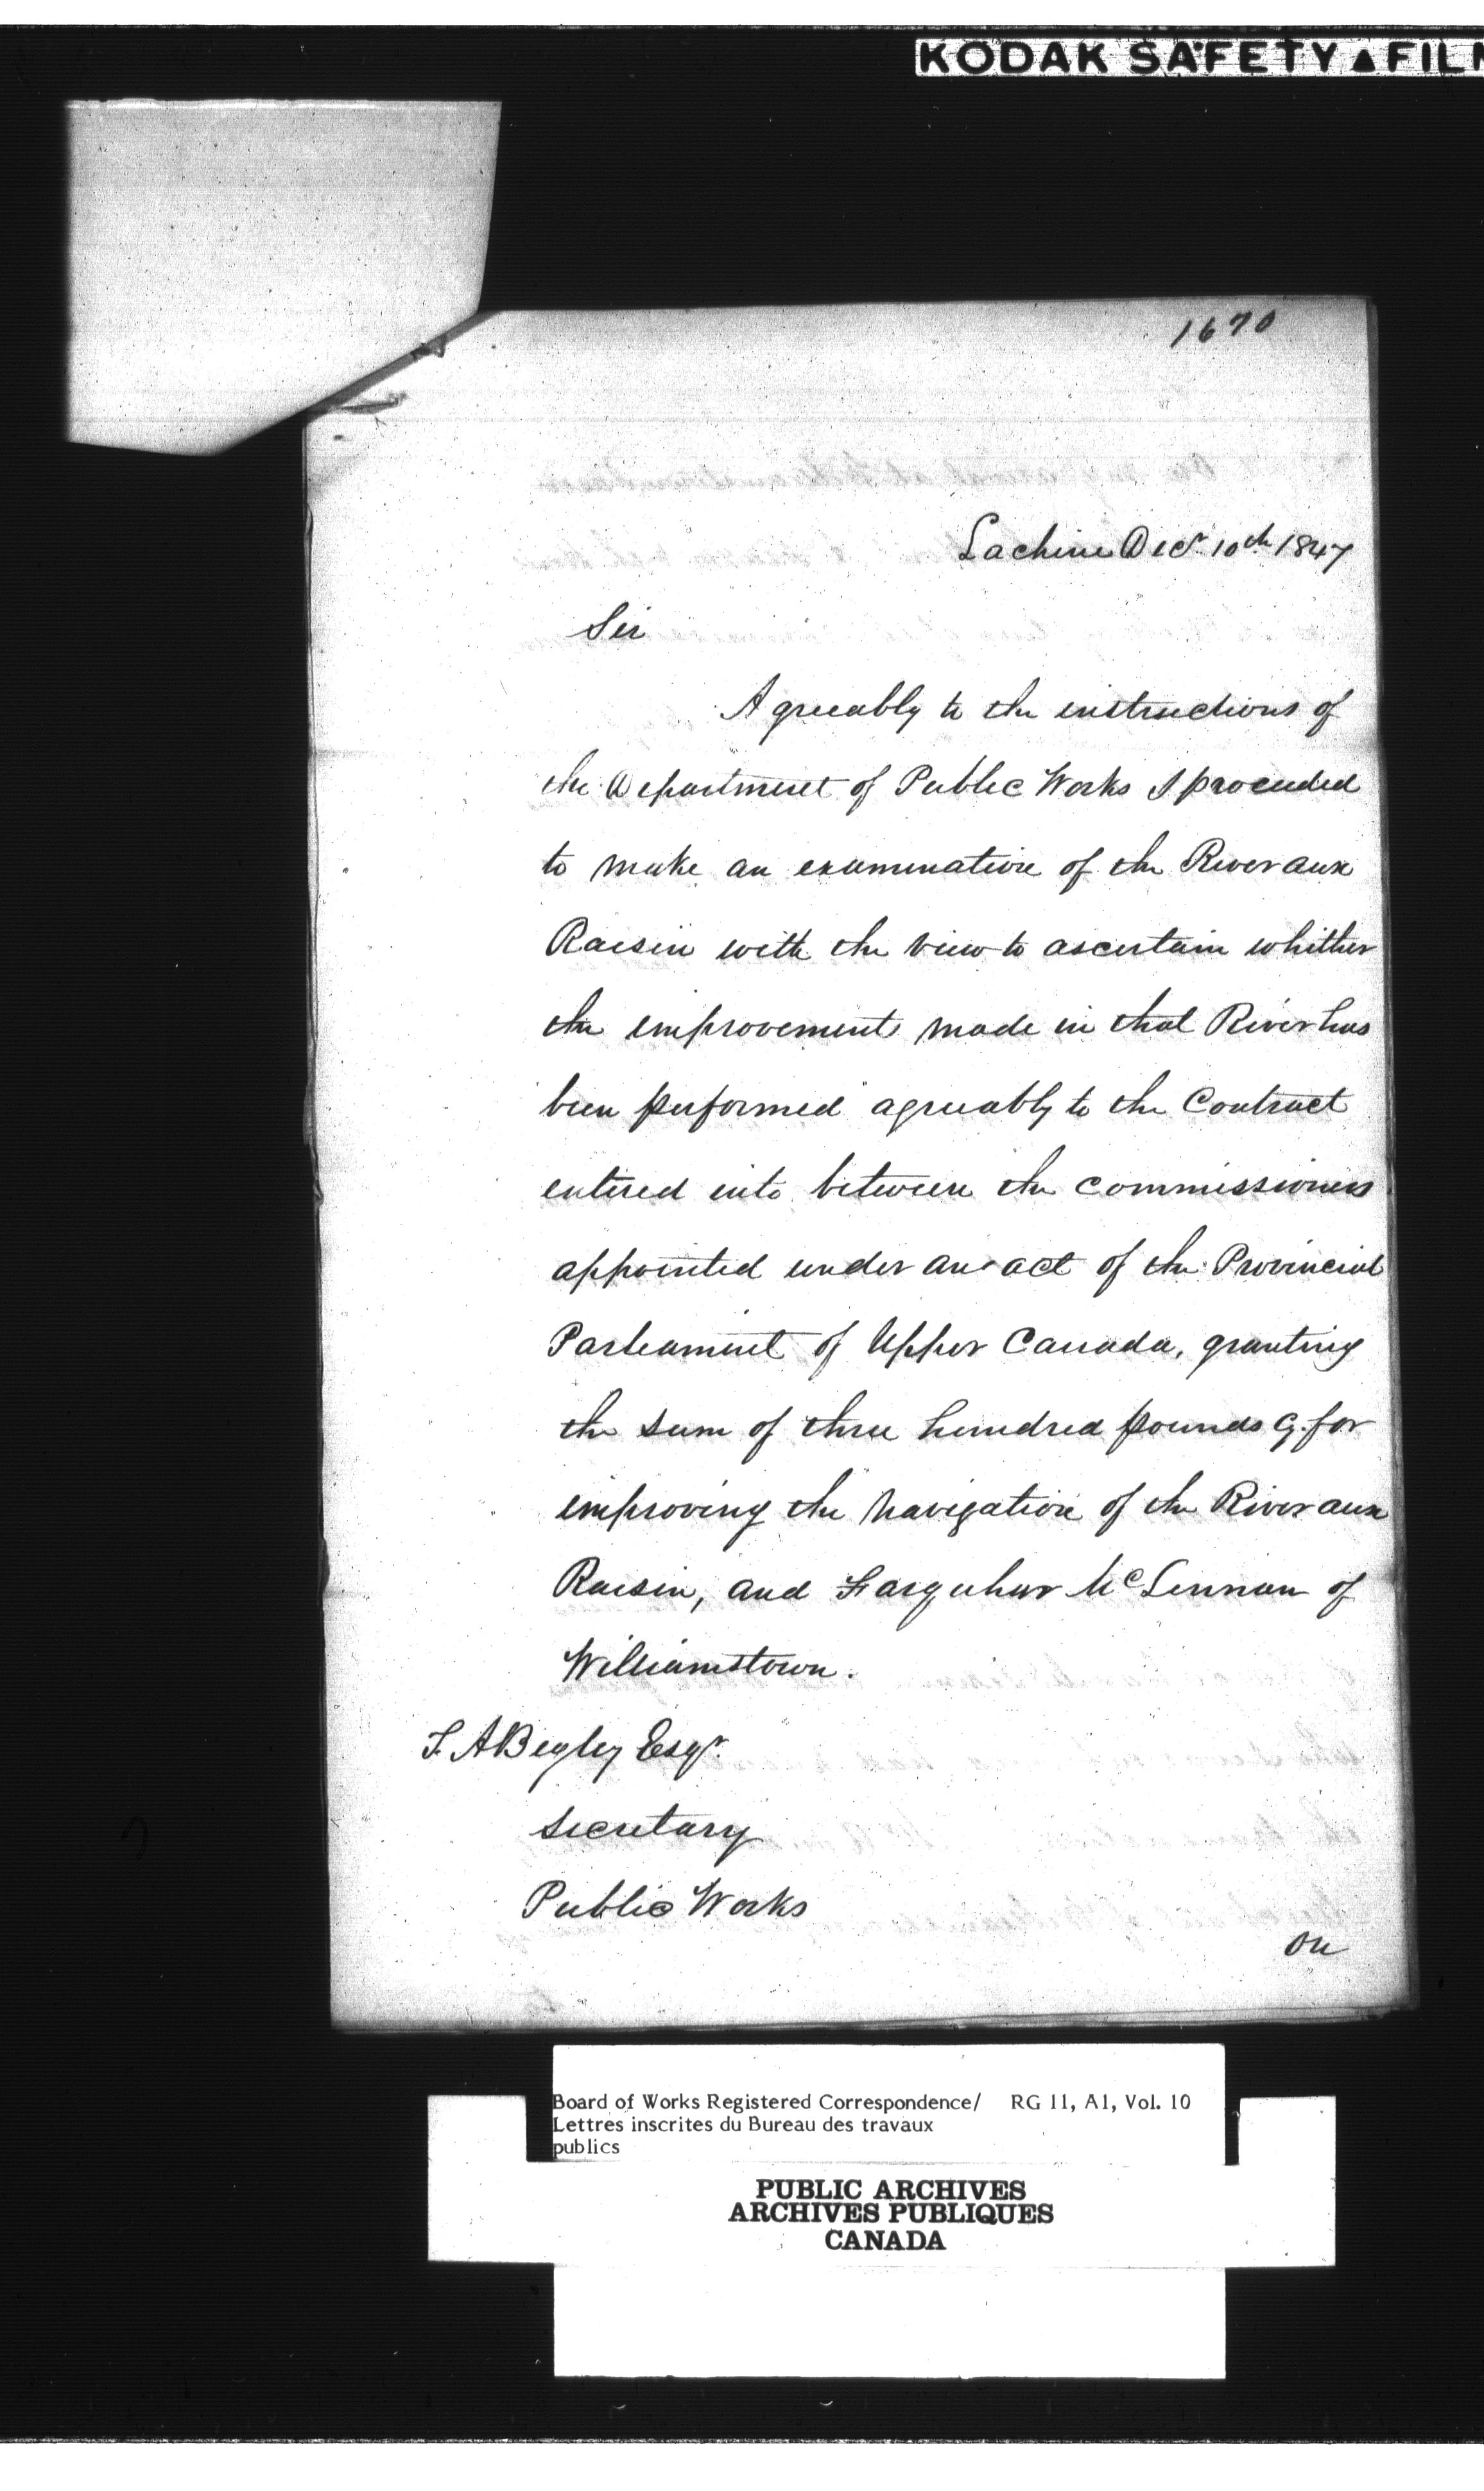 KODAK SAFETY ▲ FILM
1670
Lachine Decr. 10th 1847
Sir
Agreeably to the instructions of
the Department of Public Works I proceeded
to make an examination of the River aux
Raisin with the view to ascertain whither
the improvement made in that River has
been performed agreeably to the Contract
entered into between the Commissioners
appointed under an act of the Provincial
Parliament of Upper Canada, granting
the sum of three hundred pounds Cy. for
improving the Navigation of the River aux
Raisin, and Farquhar McLennan of
Williamstown.
T. A Begley Esqr.
Secretary
Public Works
On
Board of Works Registered Correspondence/ RG 11, A1, Vol. 10
Lettres inscrites du Bureau des travaux
publics
PUBLIC ARCHIVES
ARCHIVES PUBLIQUES
CANADA